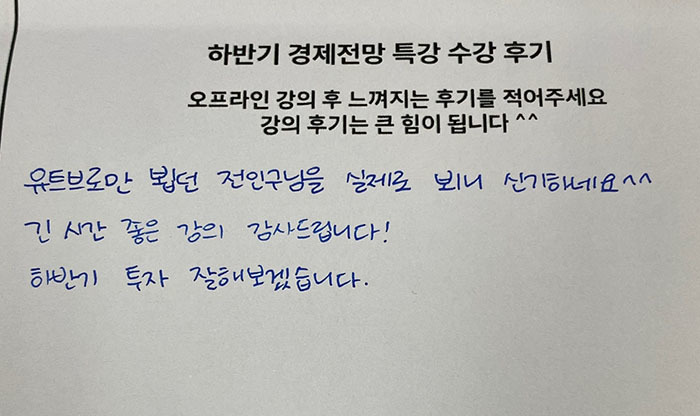 하반기 경제전망 특강 수강 후기
오프라인 강의 후 느껴지는 후기를 적어주세요
강의 후기는 큰 힘이 됩니다^^
유트브로만 봽던 전인구님을 실제로 뵈니 신기하네요^^
긴 시간 좋은 강의 감사드립니다!
하반기 투자 잘해보겠습니다.